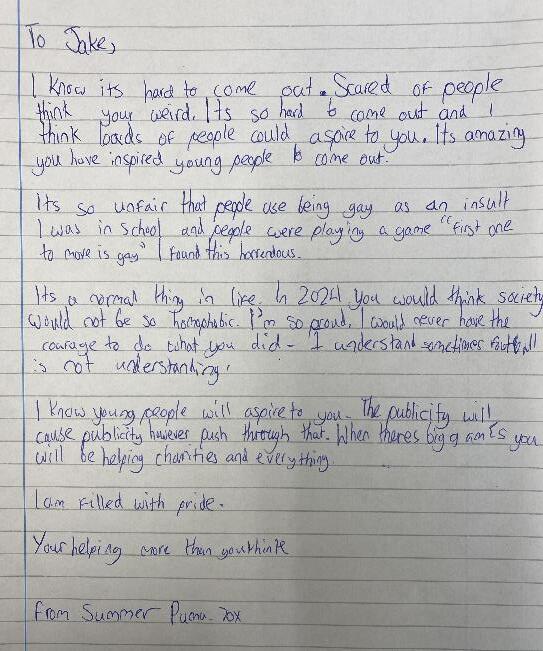 To Jake,
I know its hard to come out. Scared of people
think your weird. Its so hard to come out and I
think loads of people could aspire to you. Its amazing
you have inspired young people to come out.
Its so unfair that people use being gay as an insult
I was in school and people were playing a game "first one
to move is gay" I found this horrendous.
Its a normal thing in life. In 2024 you would think society
would not be so homophobic. I'm so proud, I would never have the
courage to do what you did - I understand sometimes football
is not understanding.
I know young people will aspire to you - The publicity will
cause publicity however push through that. When theres big games you
will be helping charities and everything.
I am filled with pride.
Your helping more than you think
From Summer